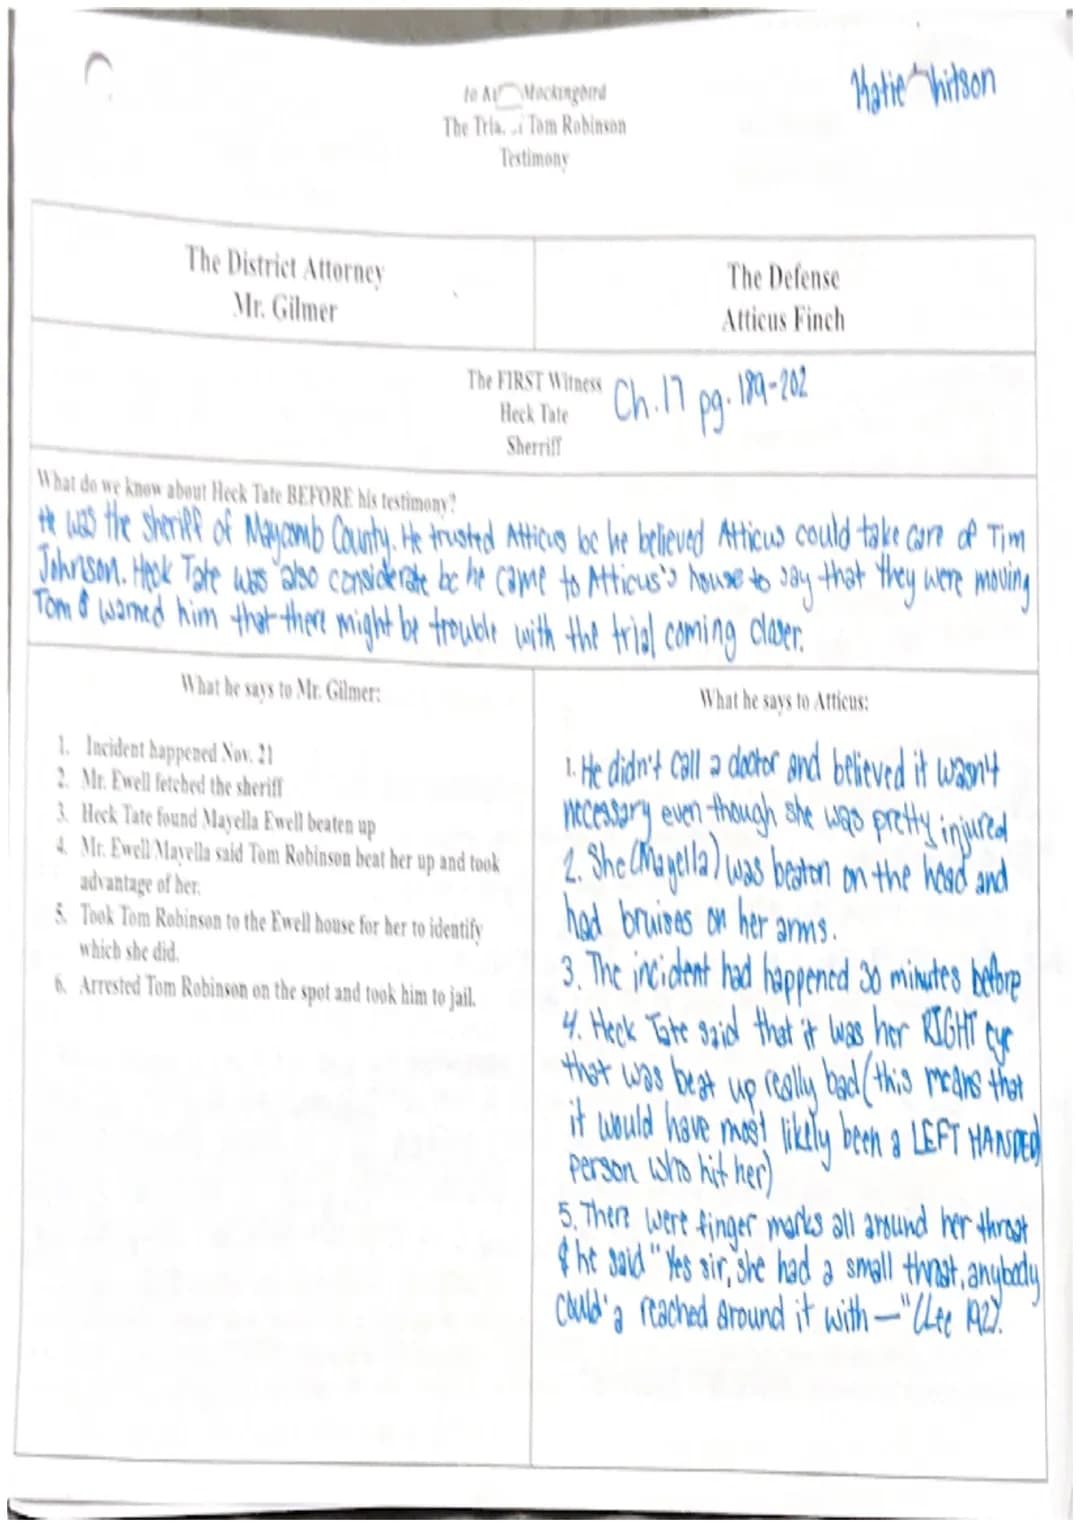 to Mockingbird
Katie hitson
The Tom Robinson
Testimony
The District Attorney
Mr. Gilmer
The Defense
Atticus Finch
The FIRST Witness Ch.17 pg. 189-202
Heck Tate
Sherriff
What do we know about Heck Tate BEFORE his testimony?
He was the sheriff of Maycomb County. He trusted Atticus bc he believed Atticus could take care of Tim
Johnson. Heck Tate was also considerate bc he came to Atticus's house to say that they were moving
Tom & warned him that there might be trouble with the trial coming closer.
What he says to Mr. Gilmer:
1. Incident happened Nov. 21
2. Mr. Ewell fetched the sheriff
3. Heck Tate found Mayella Ewell beaten up
4. Mr. Ewell/Mayella said Tom Robinson beat her up and took
advantage of her.
5. Took Tom Robinson to the Ewell house for her to identify
which she did.
6. Arrested Tom Robinson on the spot and took him to jail.
What he says to Atticus:
1. He didn't call a doctor and believed it wasn't
necessary even though she was pretty injured
2. She (Mayella) was beaten on the head and
had bruises on her arms.
3. The incident had happened 30 minutes before
4. Heck Tate said that it was her RIGHT eye
that was beat up really bad (this means that
it would have most likely been a LEFT HANDED
person who hit her)
5. There were finger marks all around her throat
& he said "Yes sir, she had a small throat, anybody
could'a reached around it with —" (Lee 192).